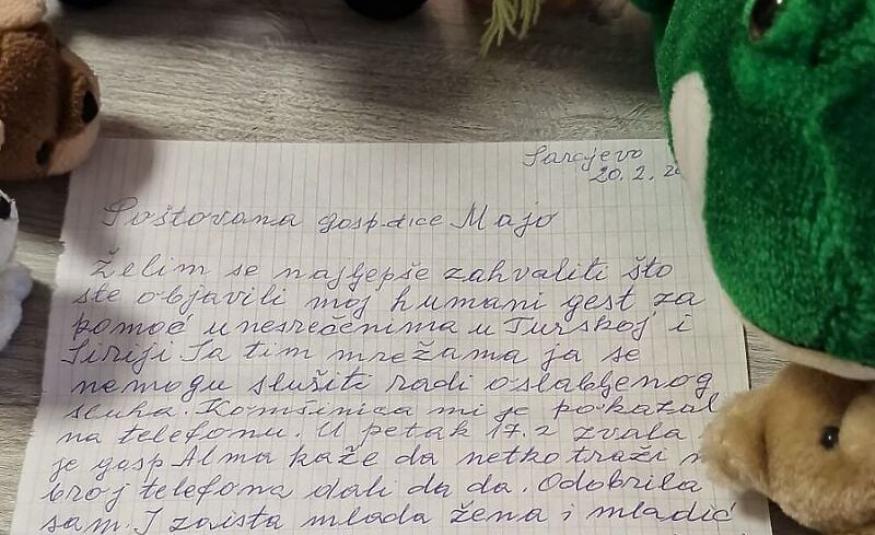 Sarajevo
20.2.
Poštovana gosp-dice Majo
Želim se najljepše zahvaliti što
ste objavili moj humani gest za
pomoć unesrećenima u Turskoj i
Siriji Sa tim mrežama ja se
nemogu slušiti radi oslabljenog
sluha. Komšinica mi je pokazal
na telefonu. U petak 17.2 zvala
je gosp Alma kaže da netko traži
broj telefona dali da da. Odobrila
sam. I zaista mlada žena i mladić